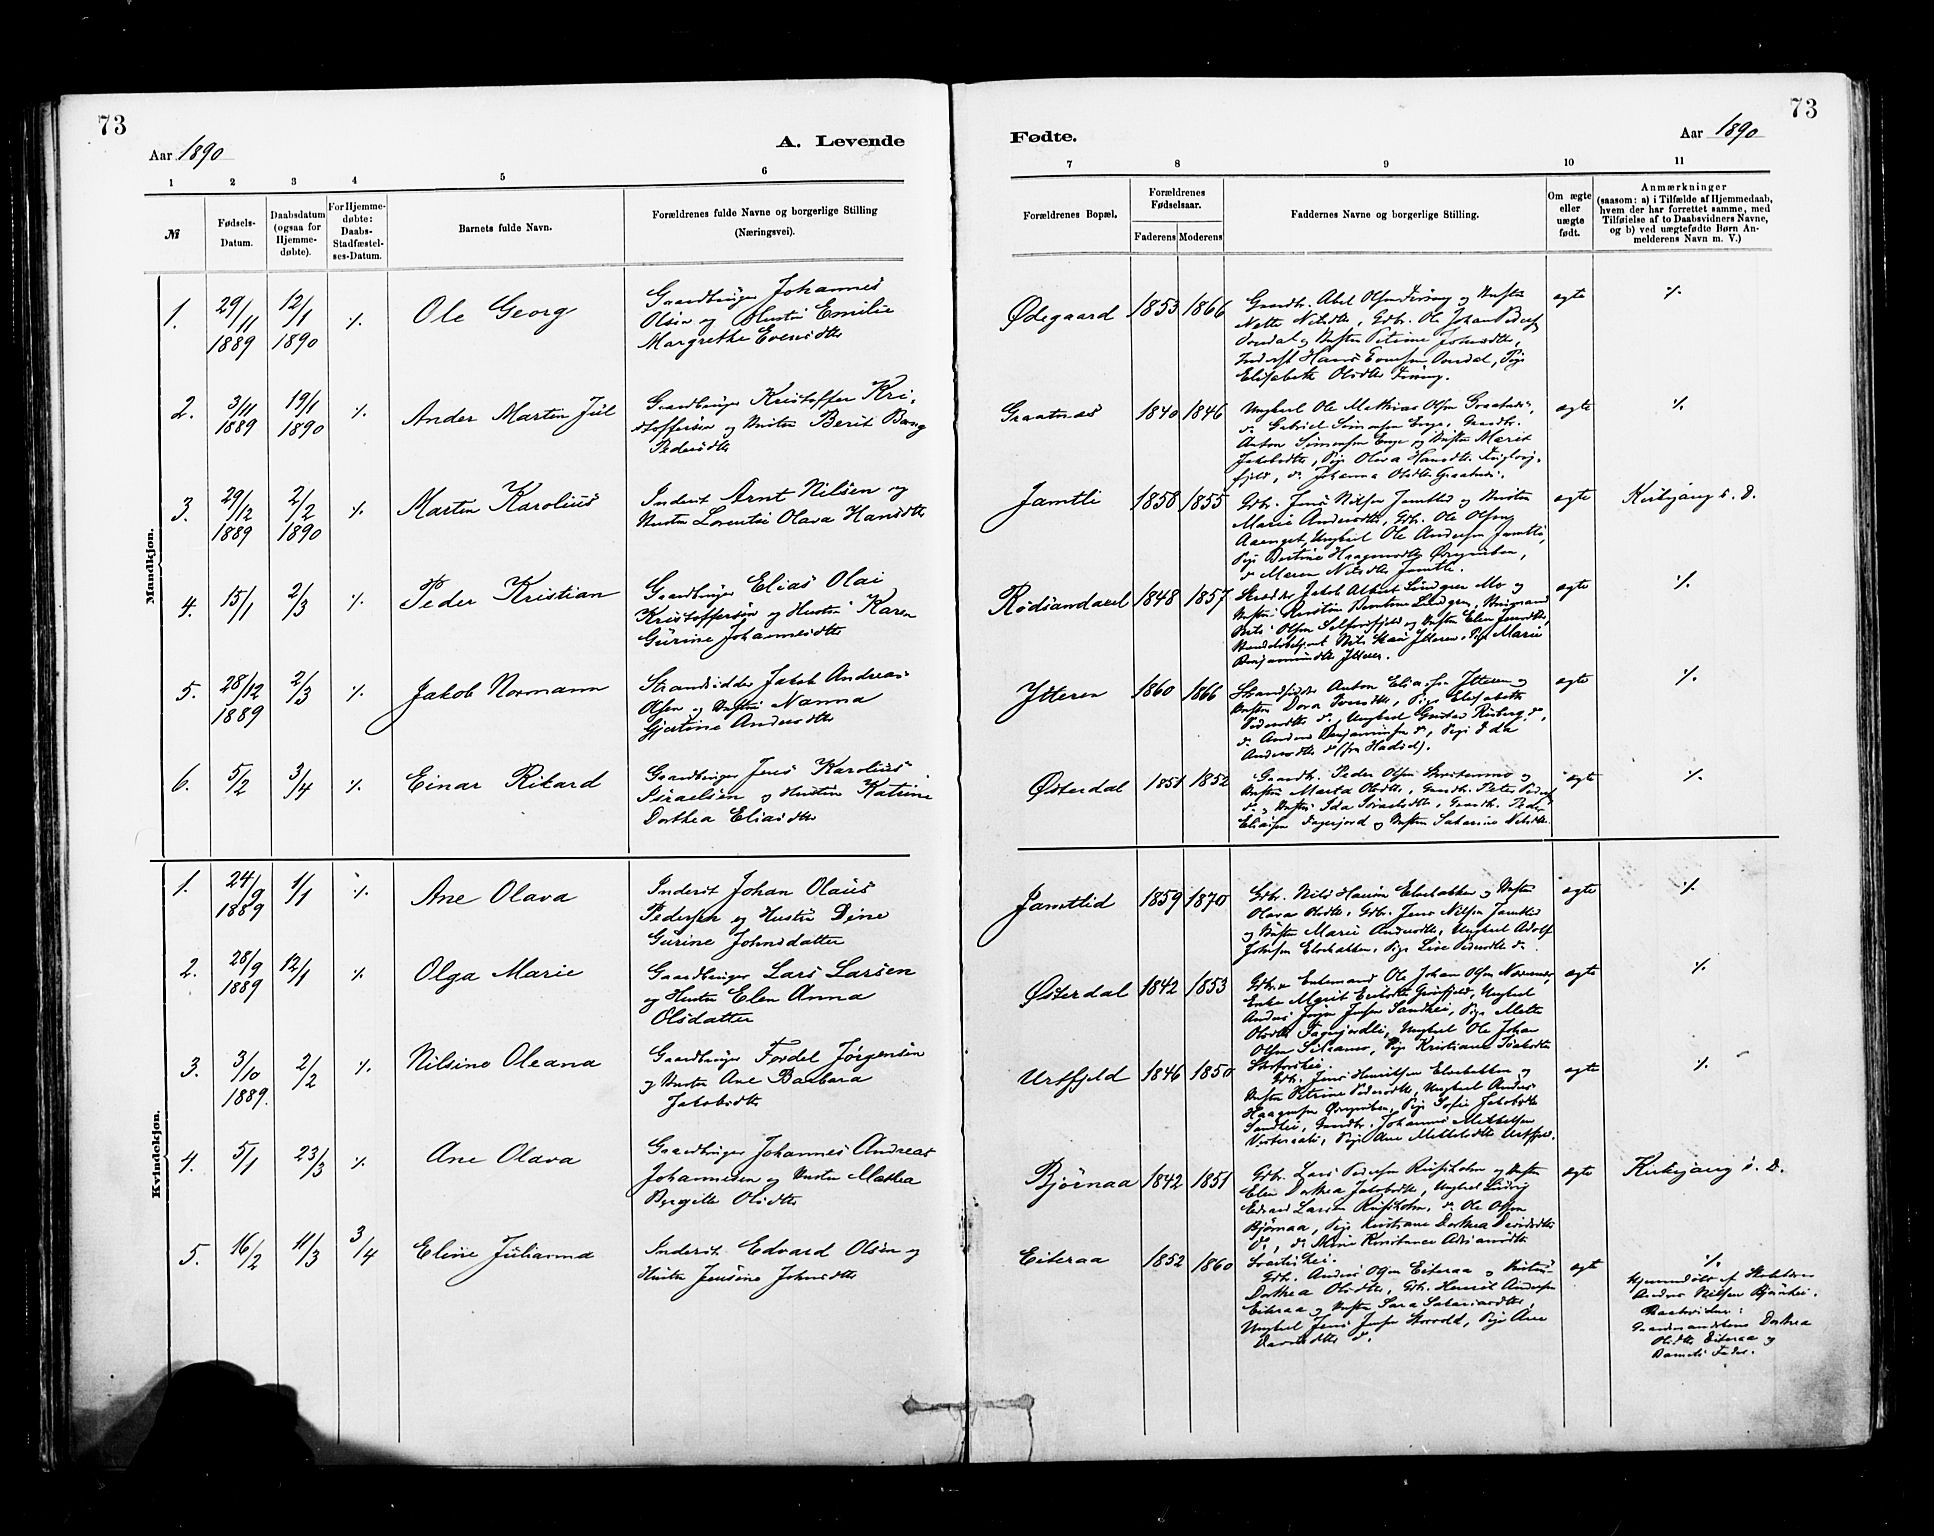 73
Aar 1890
A. Levende
1 2 3 4 5 6
№
Fødsels-Datum.
Daabsdatum (ogsaa for Hjemmedøbte).
For Hjemmedøbte: Daabs-Stadfæstelses-Datum.
Barnets fulde Navn.
Forældrenes fulde Navne og borgerlige Stilling
(Næringsvei).
Mandkjøn.
1. 29/11 1889 12/1 1890 ⁒ Ole Georg
Gaardbruger Johannes
Olsen og Hustru Emilie
Margrethe Evensdtr
2. 3/11 1889 19/1 1890 ⁒ Ander Martin Jul
Gaardbruger Kristoffer Kri-
stoffersen og Hustru Berit Bang
Pedersdtr
3. 29/12 1889 2/2 1890 ⁒ Martin Karolius
Inderst Arnt Nilsen og
Hustru Lorentse Olava Hansdtr
4. 15/1 2/3 ⁒ Peder Kristian
Gaardbruger Elias Olai
Kristoffersen og Hustru Karen
Gurine Johannesdtr
5. 28/12 1889 2/3 ⁒ Jakob Normann
Strandsidder Jakob Andreas
Olsen og Hustru Nanna
Gjertine Andersdtr
6. 5/2 3/4 ⁒ Einar Rikard
Gaardbruger Jens Karolius
Israelsen og Hustru Katrine
Dorthea Eliasdtr
Kvindekjøn.
1. 24/9 1889 1/1 ⁒ Ane Olava
Inderst Johan Olaus
Pedersen og Hustru Dine
Gurine Johnsdatter
2. 28/9 1889 12/1 ⁒ Olga Marie
Gaardbruger Lars Larsen
og Hustru Elen Anna
Olsdatter
3. 3/10 1889. 2/2 ⁒ Nilsine Oleana
Gaardbruger Fordel Jørgensen
og Hustru Ane Barbara
Jakobsdtr
4. 5/1 23/3 ⁒ Ane Olava
Gaardbruger Johannes Andreas
Johannesen og Hustru Mathea
Bergitte Olsdtr
5. 16/2 11/3 3/4 Eline Julianna
Inderst Edvard Olsen og
Hustru Jensine Johnsdtr
73
Fødte.
Aar 1890
7 8 9 10 11
Forældrenes Bopæl.
Forældrenes Fødselsaar.
Faderens Moderens
Faddernes Navne og borgerlige Stilling.
Om ægte eller uægte født.
Anmærkninger
(saasom: a) i Tilfælde af Hjemmedaab,
hvem der har forrettet samme, med
Tilføielse af to Daabsvidners Navne,
og b) ved uægtefødte Børn An-
melderens Navn m. V.)
Ødegaard 1853 1866
Gaardbr. Abel Olsen og Hustru
Nette Nilsdtr, Gdbr. Ole Johan
og Hustru Petrine Johnsdtr,
Inderst Hans Evensen, Pige
Elisabeth Olsdtr
ægte ⁒
Graatnæs 1840 1846
Ungkarl Ole Mathias Olsen Graatnæs,
do Gabriel Simonsen Enge, Gaardbr.
Anton Simonsen Enge og Hustru Marit
Jakobsdtr, Pige Olava Hansdtr
fjeld, do Johanna Olsdtr Graatnæs.
ægte ⁒
Jamtli 1858 1855
Gdbr. Jens Nilsen Jamtlid og Hustru
Marie Andersdtr, Gdbr. Ole Olsen
Aaenget, Ungkarl Ole Andersen Jamtli,
Pige Bertine Haagensdtr
do Maren Nilsdtr Jamtli.
ægte Kirkegang s. D.
Rødsandaxel 1848 1857
Skrædder Jakob Albert Lindgren Mo og
Hustru Kristine Lindgren,
Nils Olsen Selforsfjeld og Hustru Elen Jensdtr,
Handelsbetjent Nils Ytteren, Pige Marie
Benjaminsdtr Ytteren.
ægte ⁒
Ytteren 1860 1866
Strandsidder Anton Eliassen Ytteren og
Hustru Dora, Pige Elisabeth
Pedersdtr do, Ungkarl Gustav do,
do Anders Benjaminsen do, Pige Ida
Andersdtr do (fra Hadsel).
ægte ⁒
Østerdal 1851 1852
Gaardbr. Peder Olsen og
Hustru Marta Olsdtr, Gaardbr. Peter
do og Hustru Ida Israelsdtr, Gaardbr. Peder
Eliasen Fagerjord og Hustru Nilsdtr.
ægte ⁒
Jamtlid 1859 1870
Gdbr. Nils Elvebakken og Hustru
Olava Olsdtr, Gdbr. Jens Nilsen Jamtlid
og Hustru Marie Andersdtr, Ungkarl Adolf
Johnsen Elvebakken, Pige Lise Pedersdtr do.
ægte ⁒
Østerdal 1842 1853
Gdbr. Enkemand Ole Johan Olsen
Enke Marit Eriksdtr, Ungkarl
Anders Jensen Sandhei, Pige Mette
Olsdtr Fagerjordli, Ungkarl Ole Johan
Olsen, Pige Kristiane
ægte ⁒
Urtfjeld 1846 1850
Gdbr. Jens Henriksen Elvebakken og
Hustru Petrine Pedersdtr, Ungkarl Anders
Haagensen, Pige Sofie Jakobsdtr
Sandhei, Gaardbr. Johannes Mikkelsen
Vesteraali, Pige Ane Mikkelsdtr Urtfjeld.
ægte ⁒
Bjørnaa 1842 1851
Gdbr. Lars Pedersen og Hustru
Elen Dorthea Jakobsdtr, Ungkarl Ludvig
Edvard Larsen, do Ole Olsen
Bjørnaa, Pige Kristiane Dorthea Davidsdtr
do, do Mine Konstance Adriansdtr
ægte Kirkegang s. D.
Eiteraa 1852 1860
Gdbr. Anders Olsen Eiteraa og Hustru
Dorthea Olsdtr, Gdbr. Henrik Andersen
Eiteraa og Hustru Sara Sakariasdtr,
Ungkarl Jens Jensen Storvold, Pige Ane
Davidsdtr do.
ægte ⁒
Hjemmedøbt af
Anders Nilsen
Daabsvidner:
Gaardmandskone Dorthea
Olsdtr Eiteraa og
Barnets Fader.